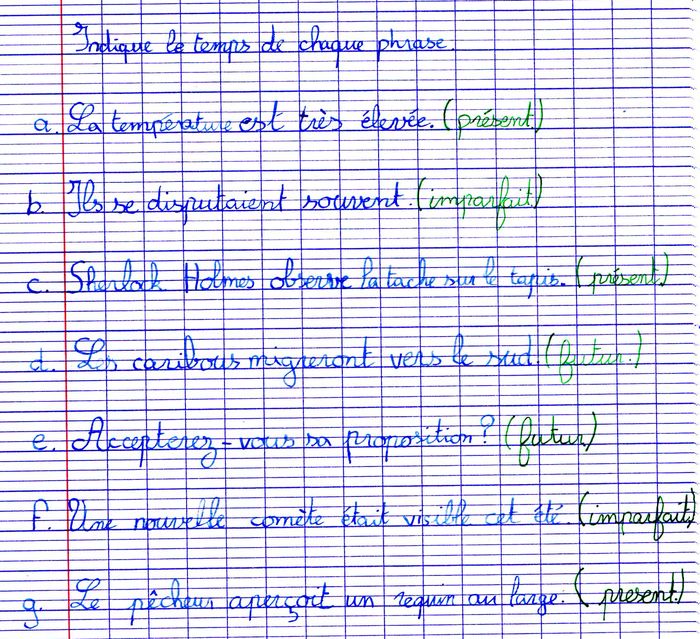 Indique le temps de chaque phrase.
a. La température est très élevée. (présent)
b. Ils se disputaient souvent. (imparfait)
c. Sherlock Holmes observe la tache sur le tapis. (présent)
d. Les caribous migreront vers le sud. (futur.)
e. Accepterez-vous sa proposition? (futur)
f. Une nouvelle comète était visible cet été. (imparfait)
g. Le pêcheur aperçoit un requin au large. (present)